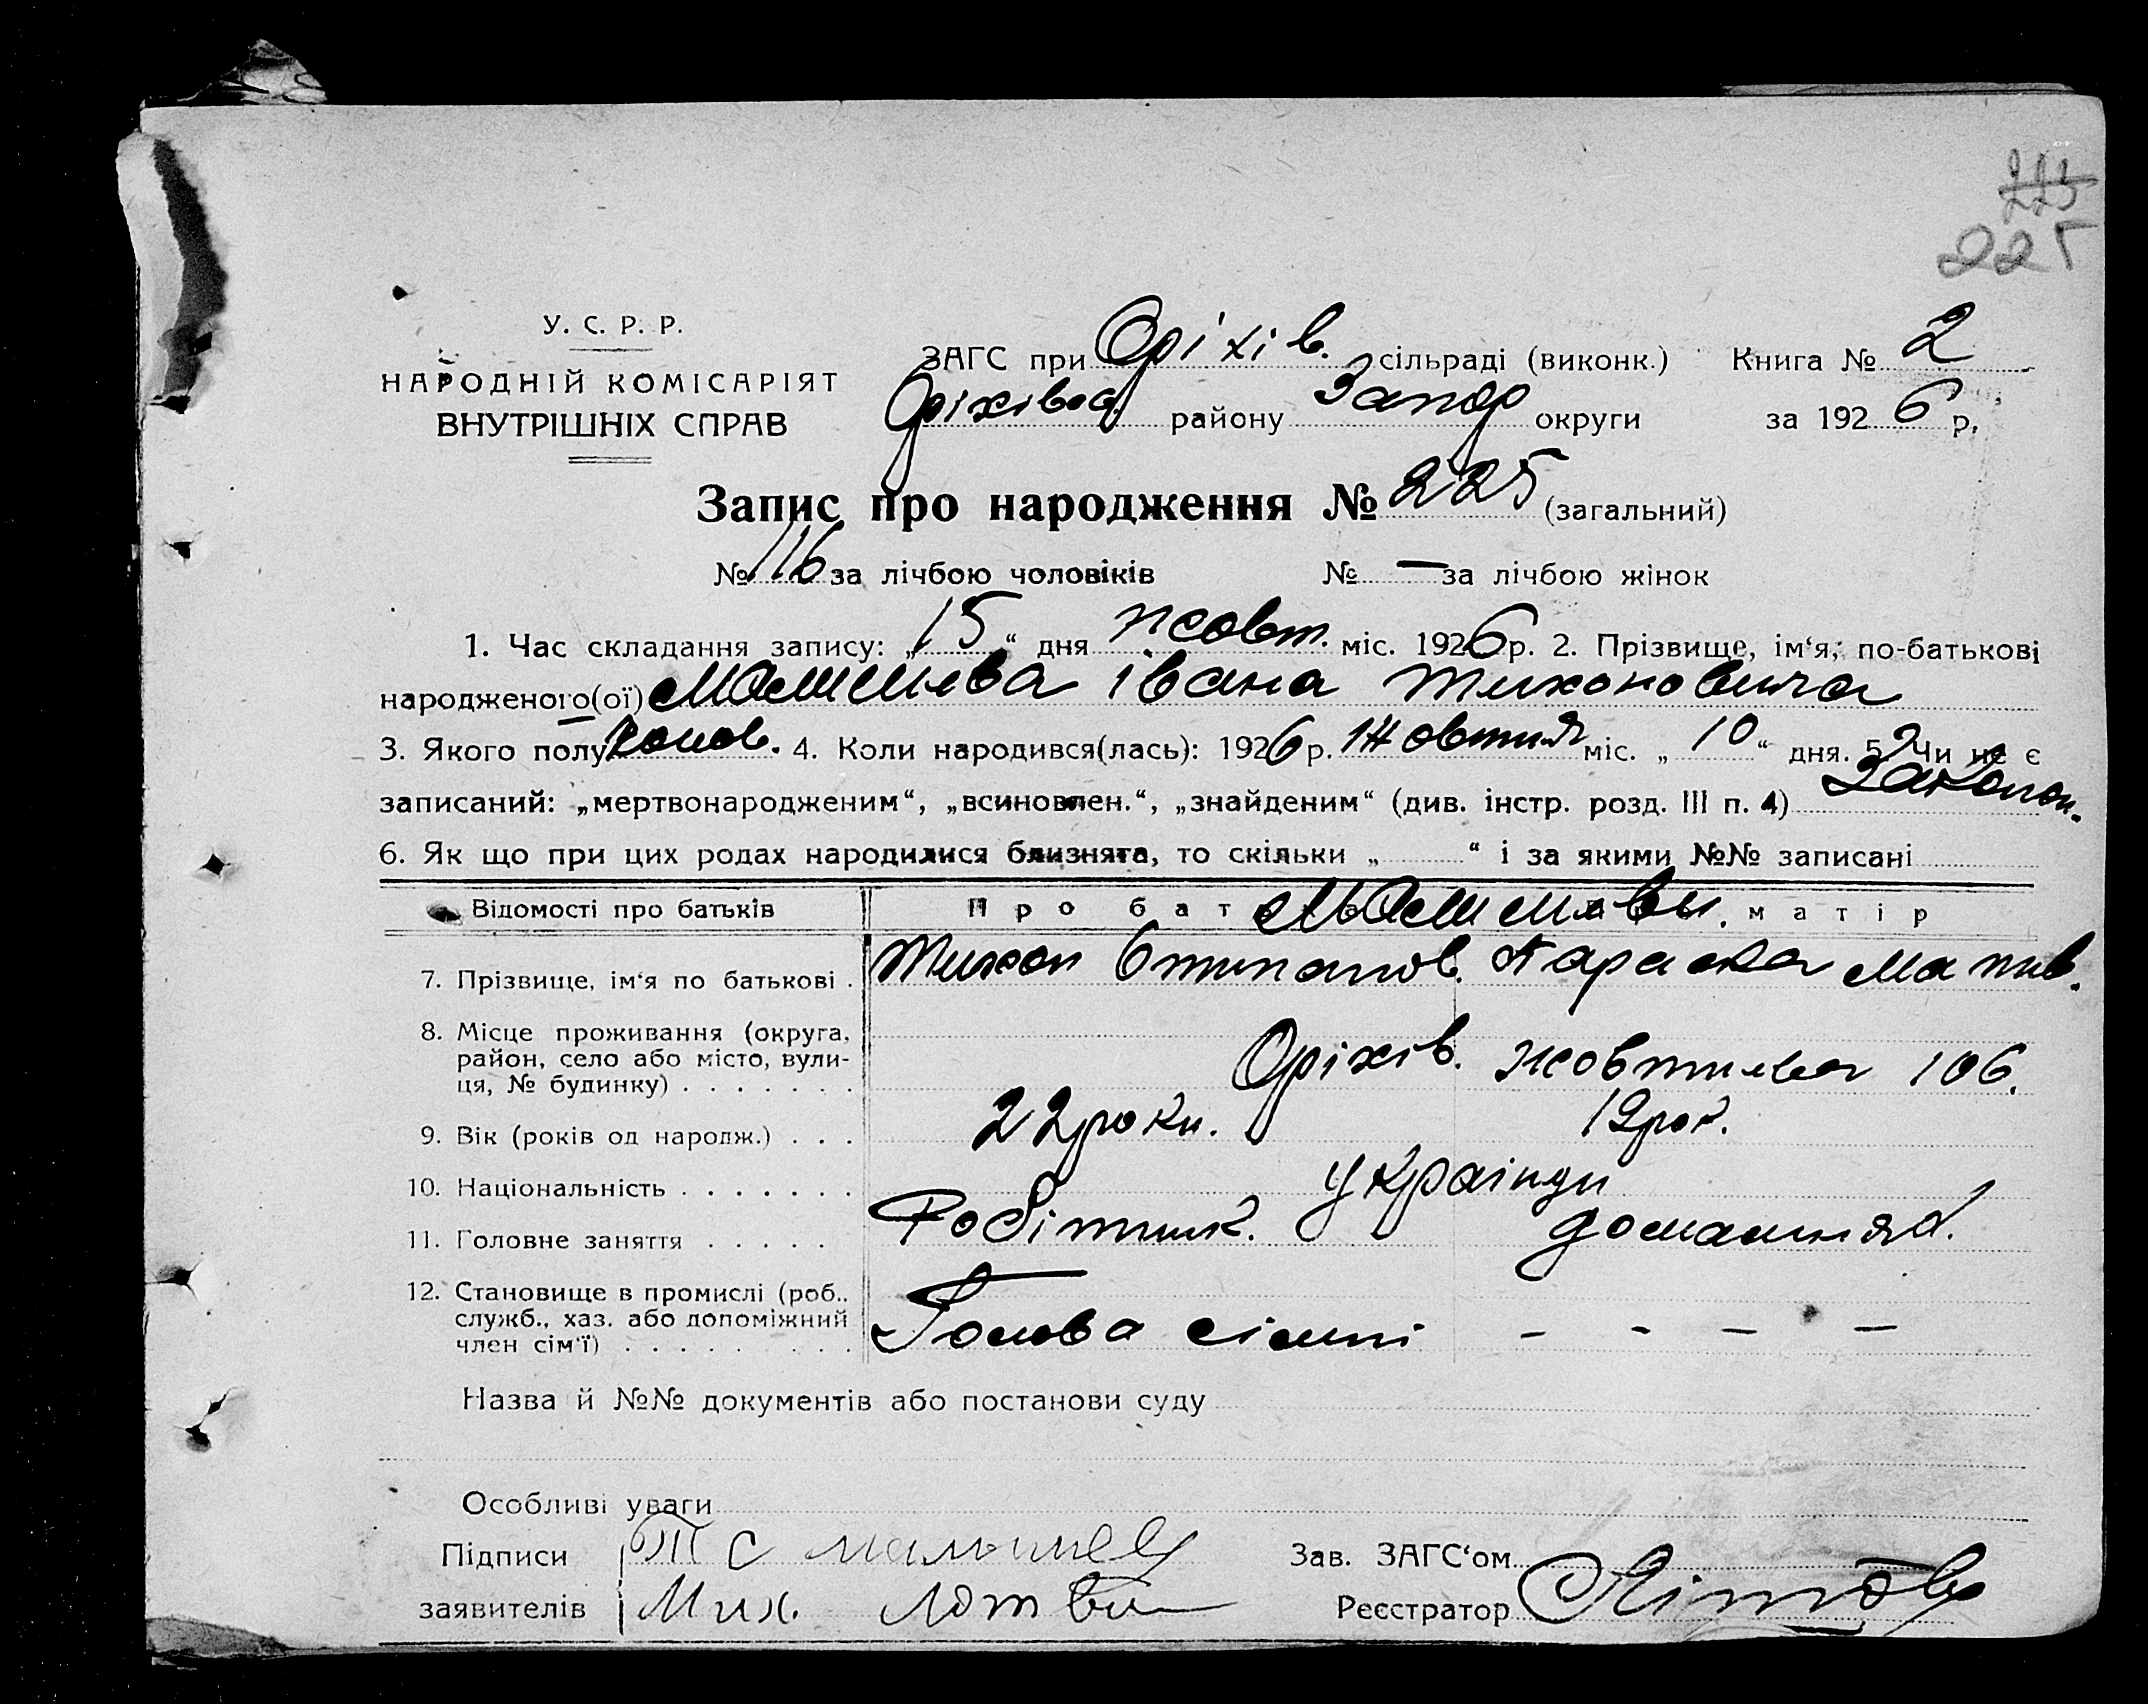 225
У. С. Р. Р.
НАРОДНІЙ КОМІСАРІЯТ
ВНУТРІШНІХ СПРАВ
ЗАГС при Оріхів. сільраді (виконк.) Книга № 2
Оріхівск. району Запор округи за 1926 р.
Запис про народження № 225 (загальний)
№ 116 за лічбою чоловіків № — за лічбою жінок
1. Час складання запису: „15“ дня жовт. міс. 1926 р. 2. Прізвище, ім‘я, по-батькові
народженого(ої) Івана Тихоновича
3. Якого полу чолов. 4. Коли народився(лась): 1926 р. Жовтня міс. „10“ дня. 5. Чи не є
записаний: „мертвонародженим“, „всиновлен.“, „знайденим“ (див. інстр. розд. III п. 4) Законон.
6. Як що при цих родах народилися близнята, то скільки „ “ і за якими №№ записані
Відомості про батьків Про батька Про матір
7. Прізвище, ім‘я по батькові . Тихон Степанов. Параска Матв.
8. Місце проживання (округа,
район, село або місто, вули-
ця, № будинку) . . . . . . . Оріхів. Жовтнева 106.
9. Вік (років од народж.) . . . 22 роки. 19 рок.
10. Національність . . . . . . . Українци
11. Головне заняття . . . . . Робітник. домашняя.
12. Становище в промислі (роб.,
служб., хаз. або допоміжний
член сім‘ї) . . . . . . . . . Голова сімні — — — —
Назва й №№ документів або постанови суду
Особливі уваги
Підписи Т С Зав. ЗАГС‘ом
заявителів Мих. Реєстратор